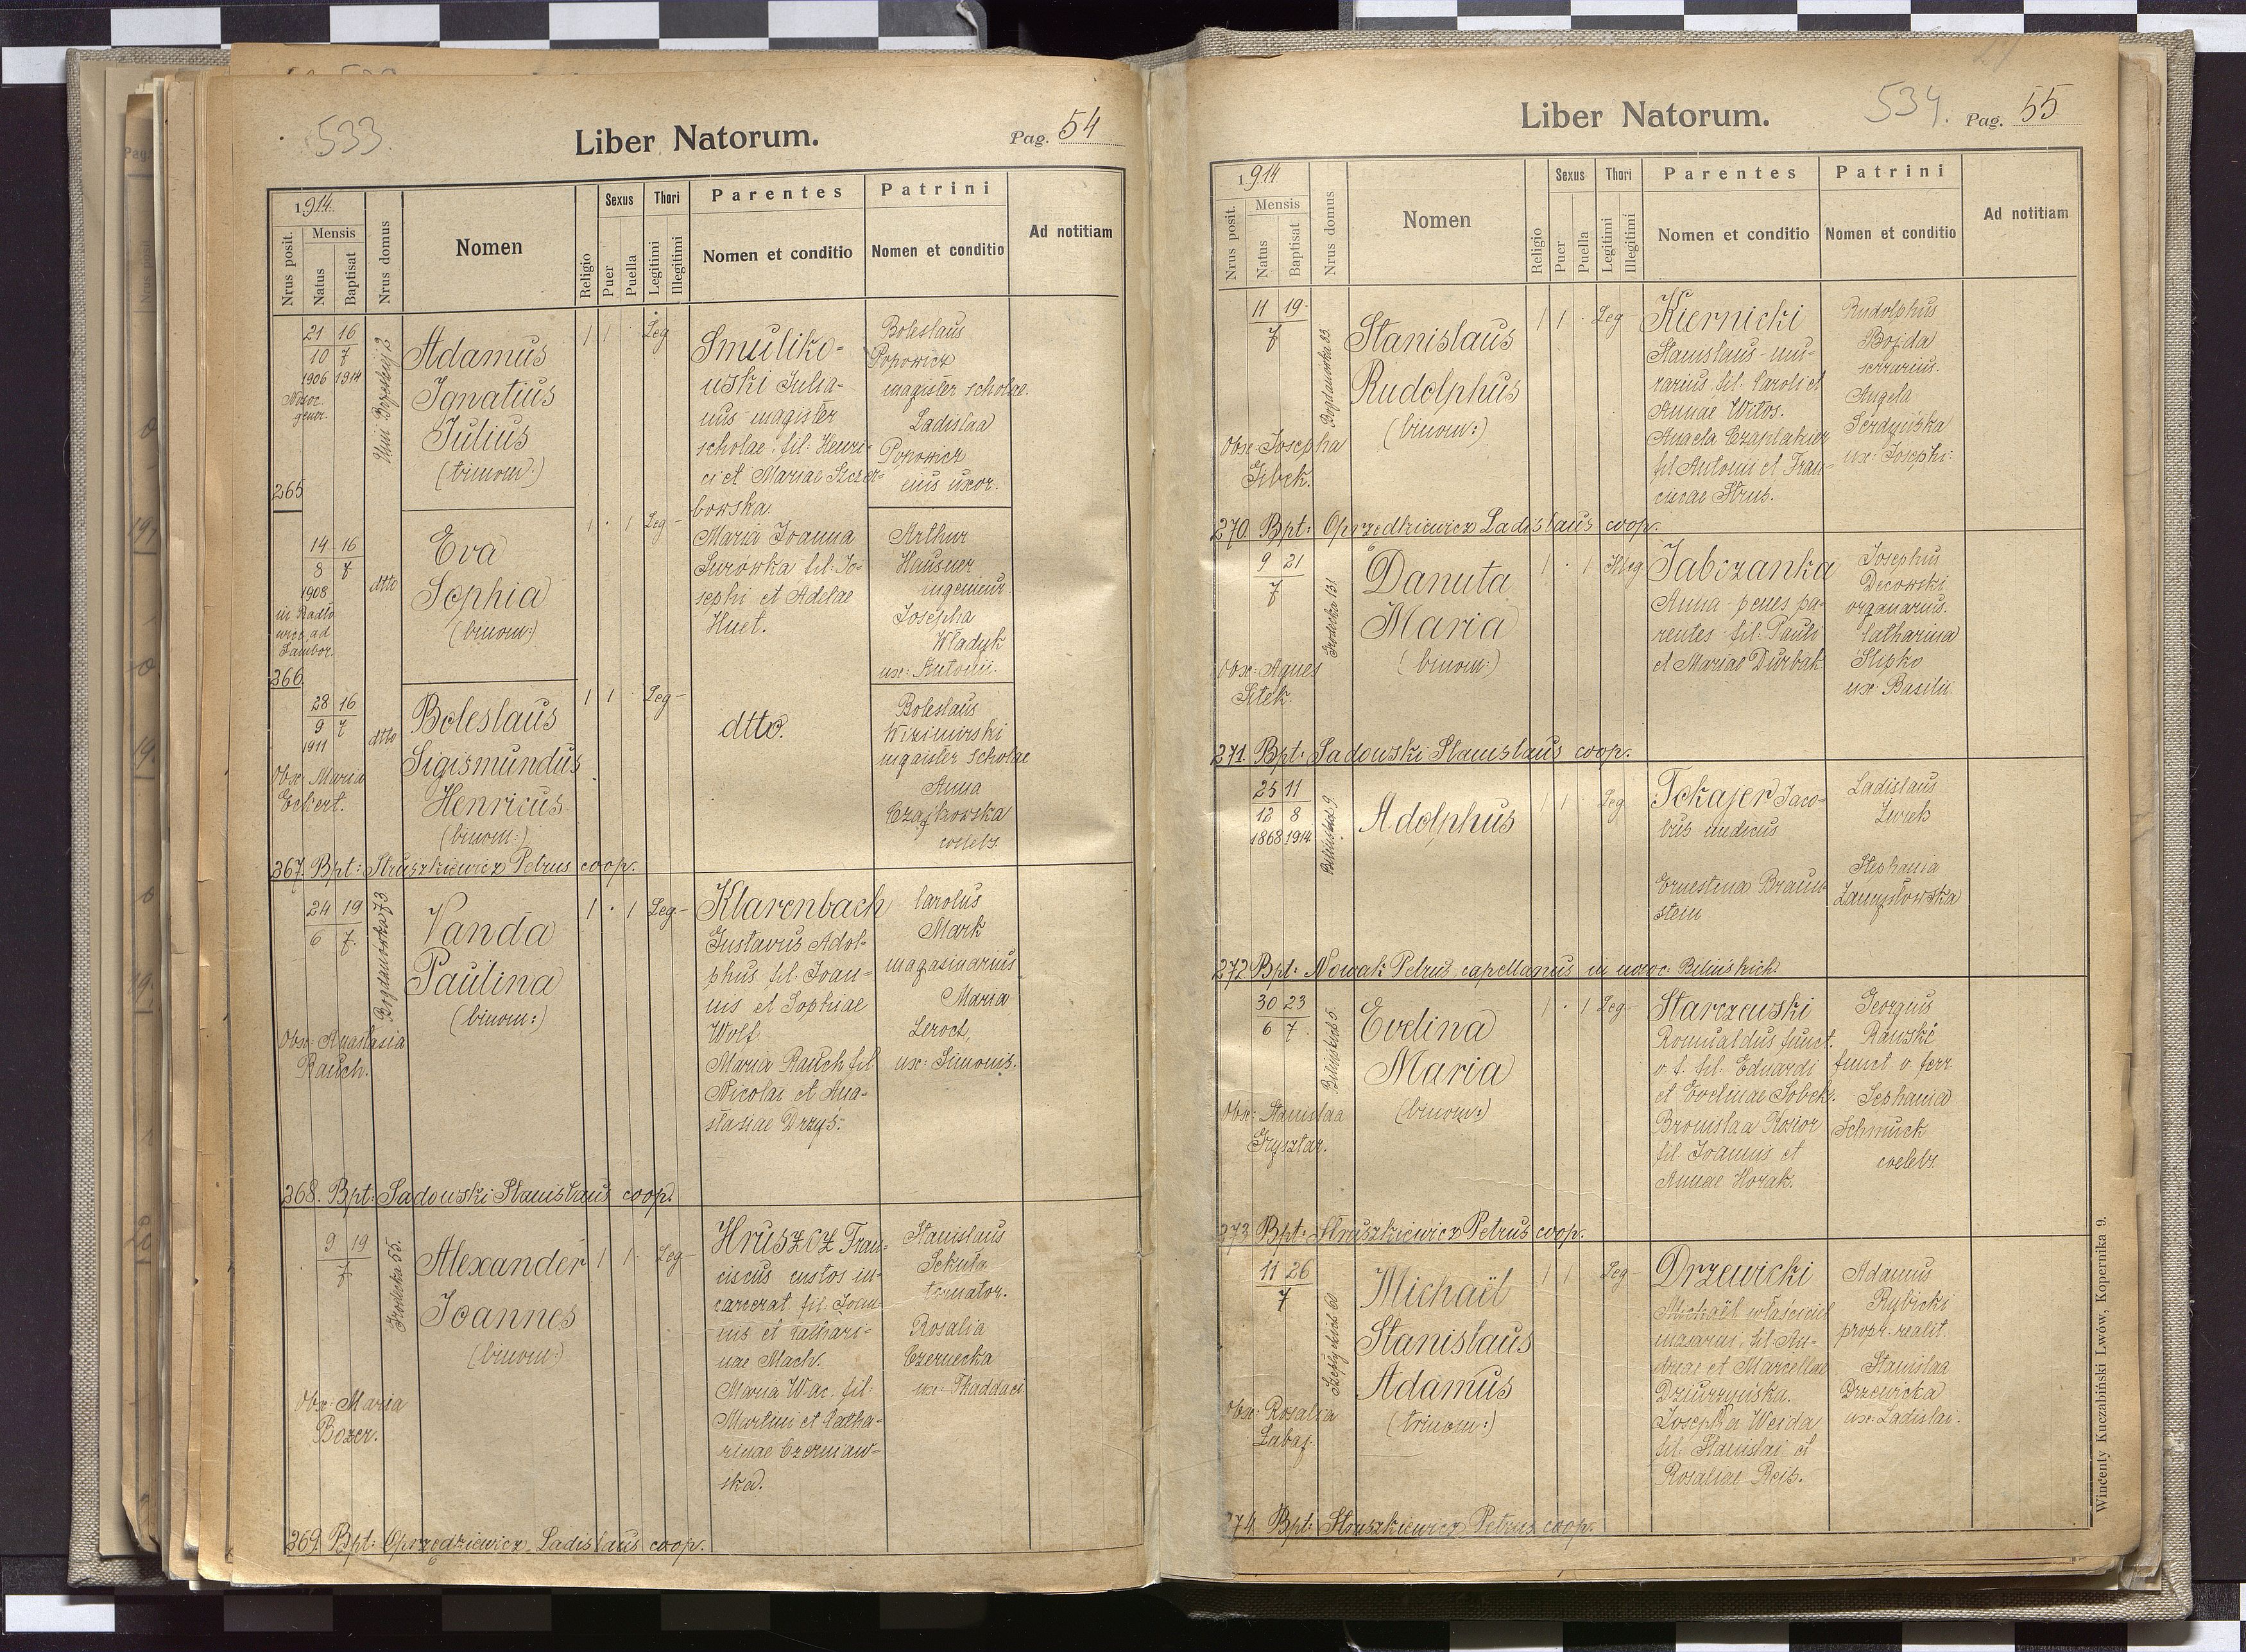 533.
Liber Natorum.
Pag. 54
1914.
Nrus posit.
Mensis
Natus
Baptisat
Nrus domus
Nomen
Religio
Sexus
Puer
Puella
Thori
Legitimi
Illegitimi
Parentes
Nomen et conditio
Patrini
Nomen et conditio
Ad notitiam
21 16
10 7
1906 1914
265
Adamus
Ignatius
Julius
(trinom:)
1 1 Leg
Smuliko-
wski Julia-
nus magister
scholae, fil: Henri-
ci et Mariae Szczer-
bowska.
Boleslaus
Popowicz
magister scholae.
Ladislaa
Popowicz
eius uxor.
14 16
8 7
1908
266.
dtto
Eva
Sophia
(binom:)
1 · 1 Leg-
Maria Joanna
Surówka fil: Jo-
sephi et Adelae
Huet.
Arthur
Hausner
ingenieur.
Josepha
Wladyk
ux: Antonii.
28 16
9 7
1911
Obx: Maria
Eckert.
dtto
Boleslaus
Sigismundus
Henricus
(binom:)
1 1 Leg-
dtto.
Boleslaus
magister scholae
Anna
Czajkowska
coelebs.
267. Bpt: Struszkiewicz Petrus coop.
24 19
6 7.
Bogdanówska 73.
Obx: Anastasia
Rauch.
Vanda
Paulina
(binom:)
1 · 1 Leg-
Klarenbach
Gustavus Adol-
phus fil. Joan-
nis et Sophiae
Wolf.
Maria Rauch fil
Nicolai et Ana-
stasiae Drzyś.
Carolus
Mark
magasinarius
Maria
Leroch,
ux: Simonis.
268. Bpt: Sadowski Stanislaus coop.
9 19
7
Grodecka 55.
Obx: Maria
Bozer.
Alexander
Joannes
(binom:)
1 1 Leg-
Hruszoz Fran-
ciscus custos in-
carcerat. fil. Joan-
nis et Cathari-
nae Mach.
Maria Wac, fil:
Martini et Catha-
rinae Czerniaw-
ska.
Stanislaus
Sekuła
tornator.
Rosalia
Czernecka
ux: Thaddaei.
269. Bpt: Oprzędkiewicz Ladislaus coop.
534.
Liber Natorum.
Pag. 55
1914.
Nrus posit.
Mensis
Natus
Baptisat
Nrus domus
Nomen
Religio
Sexus
Puer
Puella
Thori
Legitimi
Illegitimi
Parentes
Nomen et conditio
Patrini
Nomen et conditio
Ad notitiam
11 19.
7
Bogdanówka 33.
Obx: Josepha
Gibek.
Stanislaus
Rudolphus
(binom:)
1 1 · Leg
Kiernicki
Stanislaus mu-
rarius, fil: Caroli et
Annae Witos.
Angela Czaplakier
fil Antonii et Fran-
ciscae Strus.
Rudolphus
Bojda
serrarius.
Angela
Serdyńska
ux: Josephi.
270. Bpt: Oprzedkiewicz Ladislaus coop.
9 21
7
Grodecka 131
Obx: Agnes
Sitek.
Danuta
Maria
(binom:)
1 · 1 Illeg
Jabczanka
Anna penes pa-
rentes fil: Pauli
et Mariae Durbak
Josephus
Decowski
organarius.
Catharina
Slipko
ux: Basilii.
271. Bpt: Sadowski Stanislaus coop.
25 11
12 8
1868 1914
Bilińskich 9.
Adolphus
1 1 Leg
Tokajer Jaco-
bus
Ernestina Braun-
stein
Ladislaus
Zurek
Stephania
Zamysłowska
272 Bpt: Nowak Petrus capellanus in nosoc. Bilińskich.
30 23
6 7
Bilińskich 5.
Obx: Stanislaa
Grysztar.
Evelina
Maria
(binom:)
1 · 1 Leg-
Starzewski
Romualdus funct.
v. f. fil. Eduardi
et Evelinae Sobek.
Bronislaa Kosior
fil. Joannis et
Annae Horak.
Georgius
Rawski
funct v. ferr.
Sephania
Schmuck
coelebs.
273 Bpt: Struszkiewicz Petrus coop.
11 26
7
Szeptyckich 60
Obx: Rosalia
Zabaj.
Michaël
Stanislaus
Adamus
(trinom:)
1 1 Leg-
Drzewicki
Michaël właściciel
fil An-
dreae et Marcellae
Dziurzyńska.
Josepha Wejda
fil: Stanislai et
Rosaliae Reis.
Adamus
Rybicki
propr. realit.
Stanislaa
Drzewicka
ux: Ladislai.
274 Bpt: Struszkiewicz Petrus coop.
Wincenty Kuczabiński Lwów, Kopernika 9.